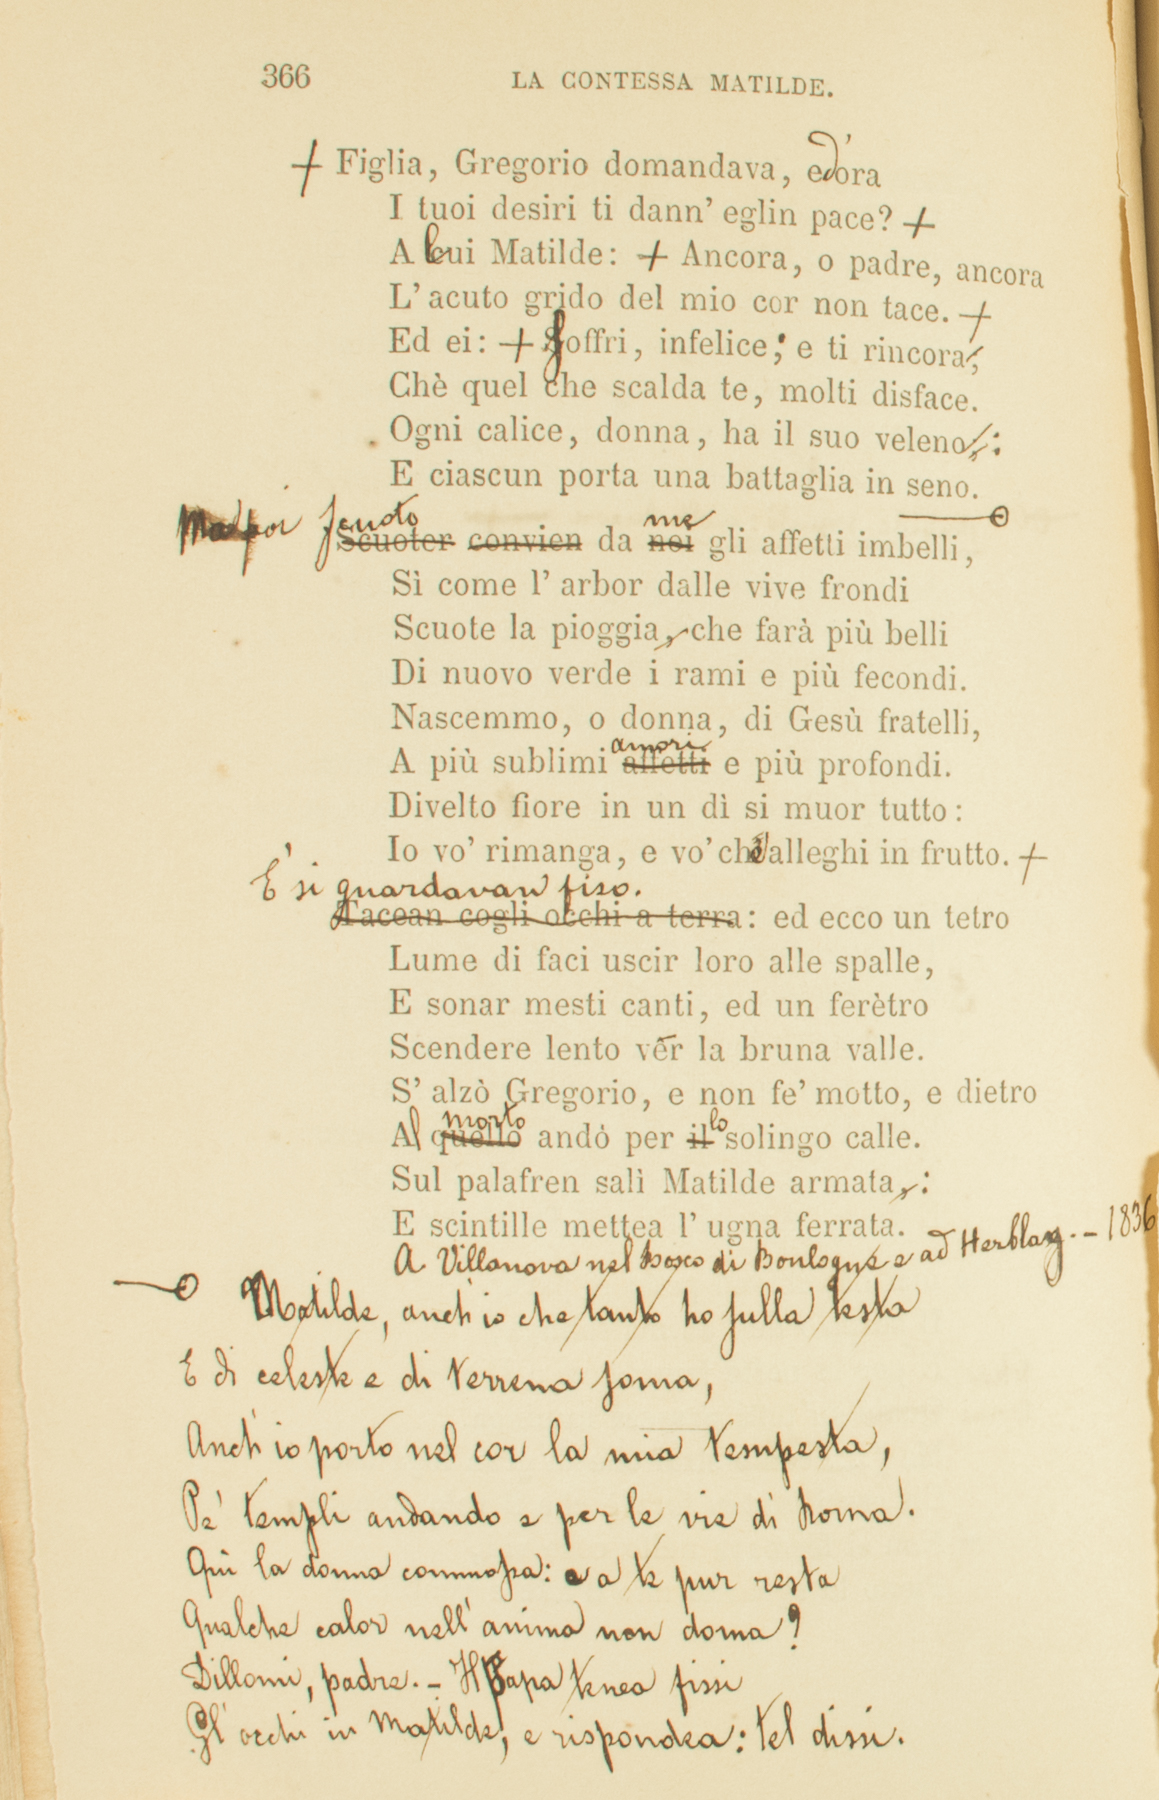 366 LA CONTESSA MATILDE.
+ Figlia, Gregorio domandava, ed óra
I tuoi desiri ti dann' eglin pace? +
A lui Matilde: + Ancora, o padre, ancora
L' acuto grido del mio cor non tace. +
Ed ei: + Soffri, infelice; e ti rincora;
Chè quel che scalda te, molti disface.
Ogni calice, donna, ha il suo veleno:
E ciascun porta una battaglia in seno.
Ma poi scuoto me
Scuoter convien da noi gli affetti imbelli,
Sì come l' arbor dalle vive frondi
Scuote la pioggia, che farà più belli
Di nuovo verde i rami e più fecondi.
Nascemmo, o donna, di Gesù fratelli,
amori
A più sublimi affetti e più profondi.
Divelto fiore in un dì si muor tutto:
Io vo' rimanga, e vo' ch' alleghi in frutto. +
E' si guardavan fiso.
Tacean cogli occhi a terra: ed ecco un tetro
Lume di faci uscir loro alle spalle,
E sonar mesti canti, ed un ferètro
Scendere lento vêr la bruna valle.
S' alzò Gregorio, e non fe' motto, e dietro
morto lo
Al quello andò per il solingo calle.
Sul palafren salì Matilde armata:
E scintille mettea l' ugna ferrata.
A Villanova nel bosco di Boulogne e ad Herblay. - 1836
Matilde, anch'io che tanto ho sulla testa
E di celeste e di terrena soma,
Anch'io porto nel cor la mia tempesta,
Pe' templi andando e per le vie di Roma.
Qui la donna commossa: e a te pur resta
Qualche calor nell'anima non doma?
Dillomi, padre. - Il Papa tenea fissi
Gl' occhi in Matilde, e rispondea: tel dissi.